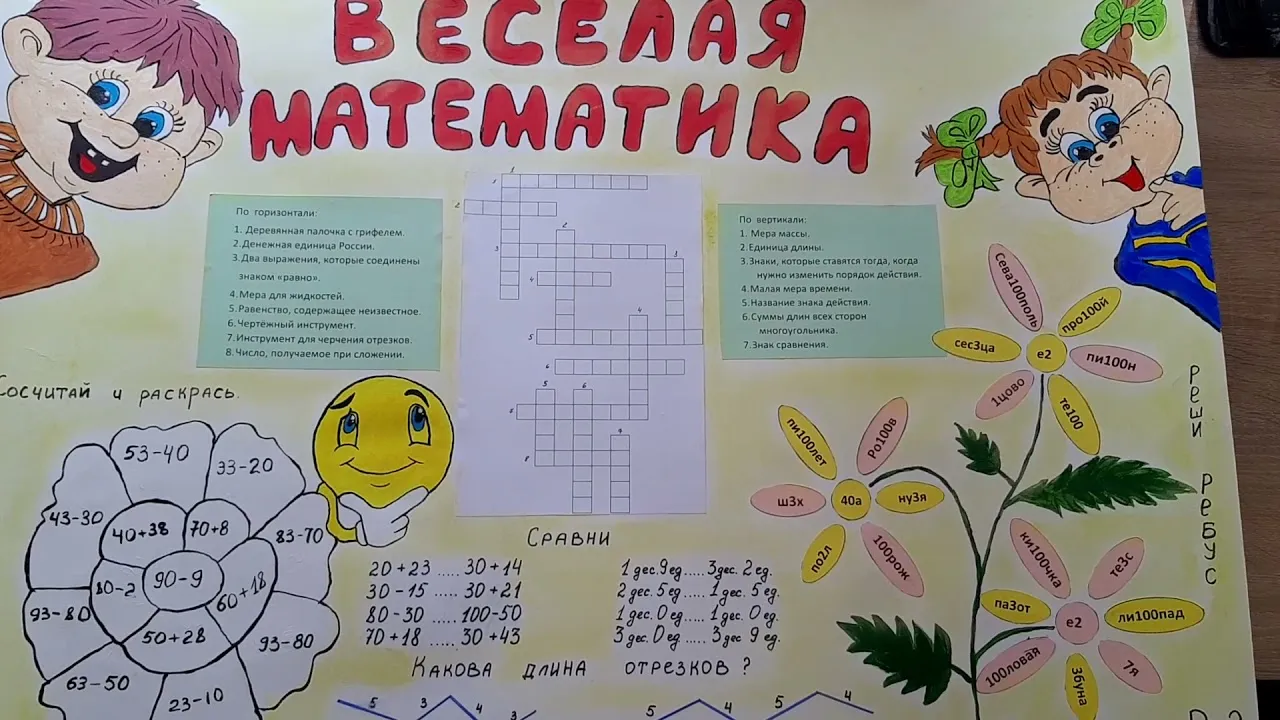 ВЕСЕЛАЯ
МАТЕМАТИКА
По горизонтали:
1. Деревянная палочка с грифелем.
2.Денежная единица России.
3.Два выражения, которые соединены
знаком «равно».
4.Мера для жидкостей.
5.Равенство, содержащее неизвестное.
6.Чертёжный инструмент.
7.Инструмент для черчения отрезков.
8.Число, получаемое при сложении.
1
1
2
2
3
3
4
4
5
6
5
6
6
8
По вертикали:
1. Мера массы.
2.Единица длины.
3.Знаки, которые ставятся тогда, когда
нужно изменить порядок действия.
4.Малая мера времени.
5.Название знака действия.
6.Суммы длин всех сторон
многоугольника.
7.Знак сравнения.
Сосчитай и раскрась.
53-40
33-20
43-30
83-70
40+38
70+8
80-2
90-9
60+18
93-80
50+28
93-80
63-50
23-10
Сравни
20+23 ..... 30+14
30-15 ..... 30+21
80-30 ..... 100-50
70+18 ..... 30+43
1 дес.9ед.....3дес.2ед.
2 дес.5ед.....1 дес.5ед.
1 дес.0ед.....1 дес.0ед.
3 дес.0ед.....3 дес 9ед.
Какова длина отрезков?
5
3
4
3
5
4
5
4
Сева100поль
про100й
сес3ца
е2
пи100н
1цово
те100
пи100лет
Ро100в
ш3х
40а
ну3я
по2л
100рож
ки100чка
те3с
па3от
е2
ли100пад
100ловая
3буна
7я
Реши
ребус